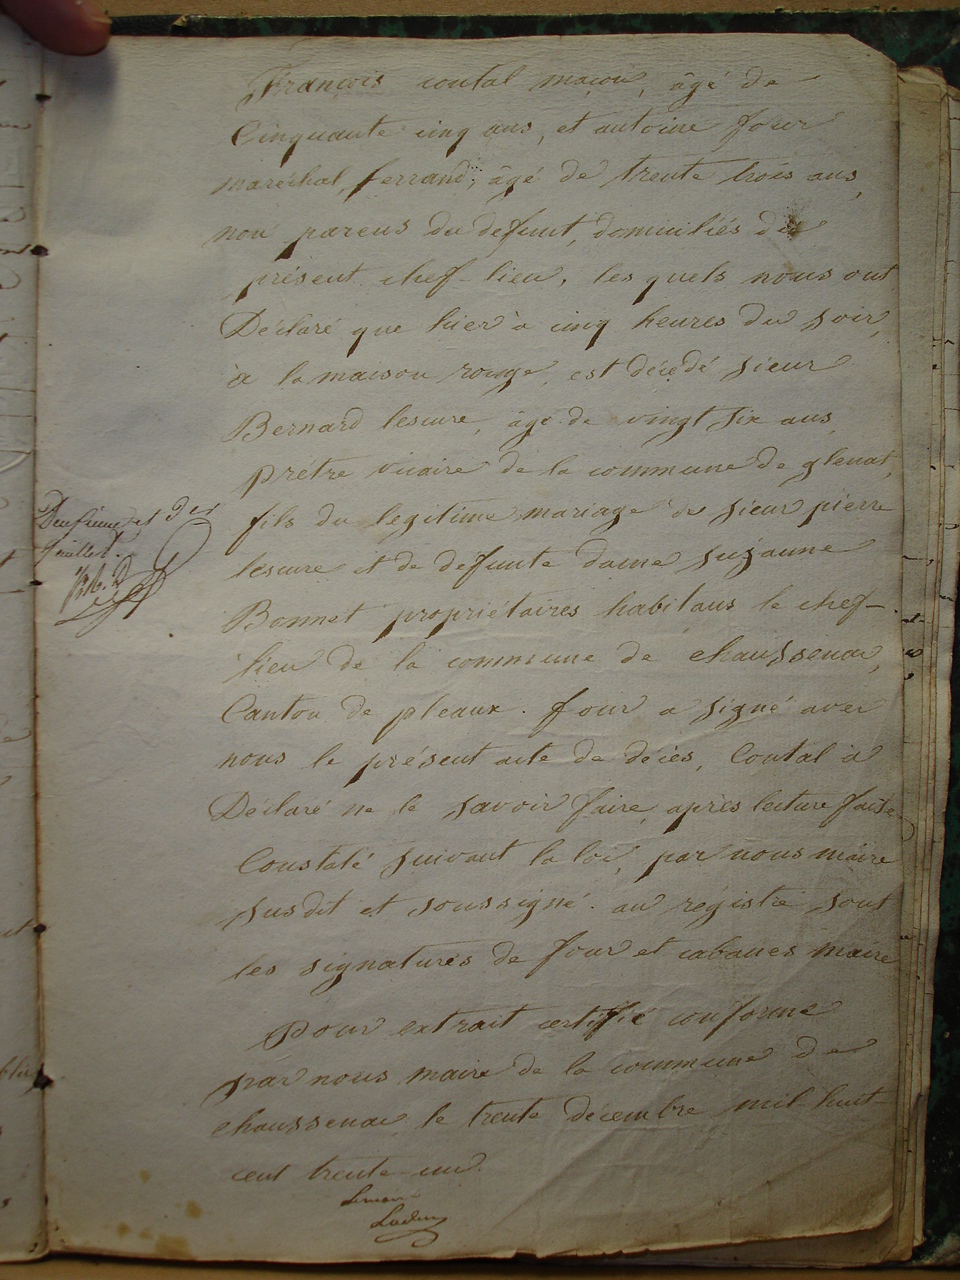 François coutal maçon, âgé de
Cinquante cinq ans, et antoine four
maréchal, ferrand, âgé de trente trois ans,
non parens du defunt, domiciliés du
présent chef-lieu, les quels nous ont
Déclaré que hier à cinq heures du soir,
à la maison rouge, est décédé sieur
Bernard lescure, âgé de vingt six ans,
prêtre vicaire de la commune de glenat,
fils du légitime mariage de sieur pierre
lescure et de defunte dame suzanne
Bonnet propriétaires habitans le chef-
lieu de la commune de chaussenac,
Canton de pleaux. four a signé avec
nous le présent acte de décès, Coutal a
Déclaré ne le savoir faire, après lecture faite
Constaté suivant la loi, par nous maire
susdit et soussigné. au régistre sont
les signatures de four et cabanes maire
pour extrait certifié conforme
par nous maire de la commune de
chaussenac le trente décembre mil huit
cent trente un.
et dix
feuillet.